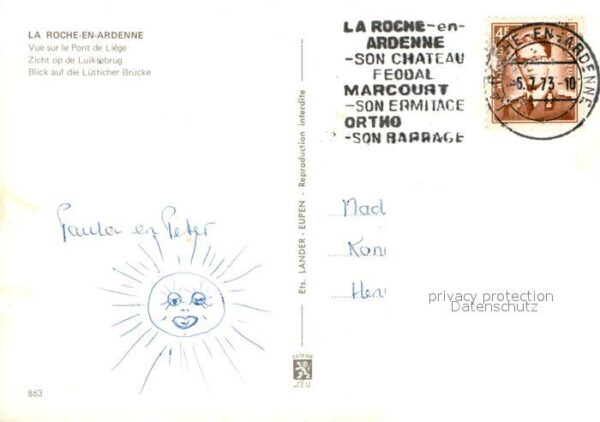 LA ROCHE-EN-ARDENNE
Vue sur le Pont de Liège
Zicht op de Luiksebrug
Blick auf die Lütticher Brücke
LA ROCHE-en-
ARDENNE
-SON CHATEAU
FEODAL
MARCOURT
-SON ERMITAGE
ORTHO
-SON BARRAGE
4F
LA ROCHE-EN-ARDENNE
-5.7.73-10
Paula en Peter
Ets. LANDER - EUPEN - Reproduction interdite
Mad
Kon
Hen
privacy protection
Datenschutz
CEU
863